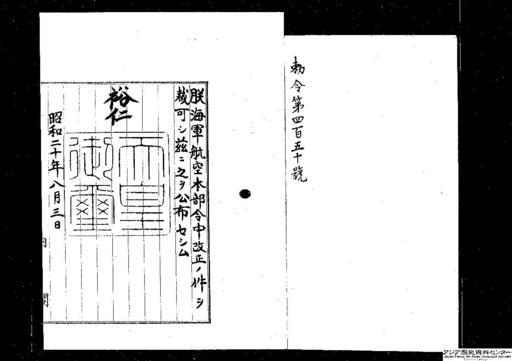 勅令第四百五十號
朕海軍航空本部令中改正ノ件ヲ
裁可シ茲ニ之ヲ公布セシム
裕仁
天皇
御璽
昭和二十年八月三日
内閣
アジア歴史資料センター